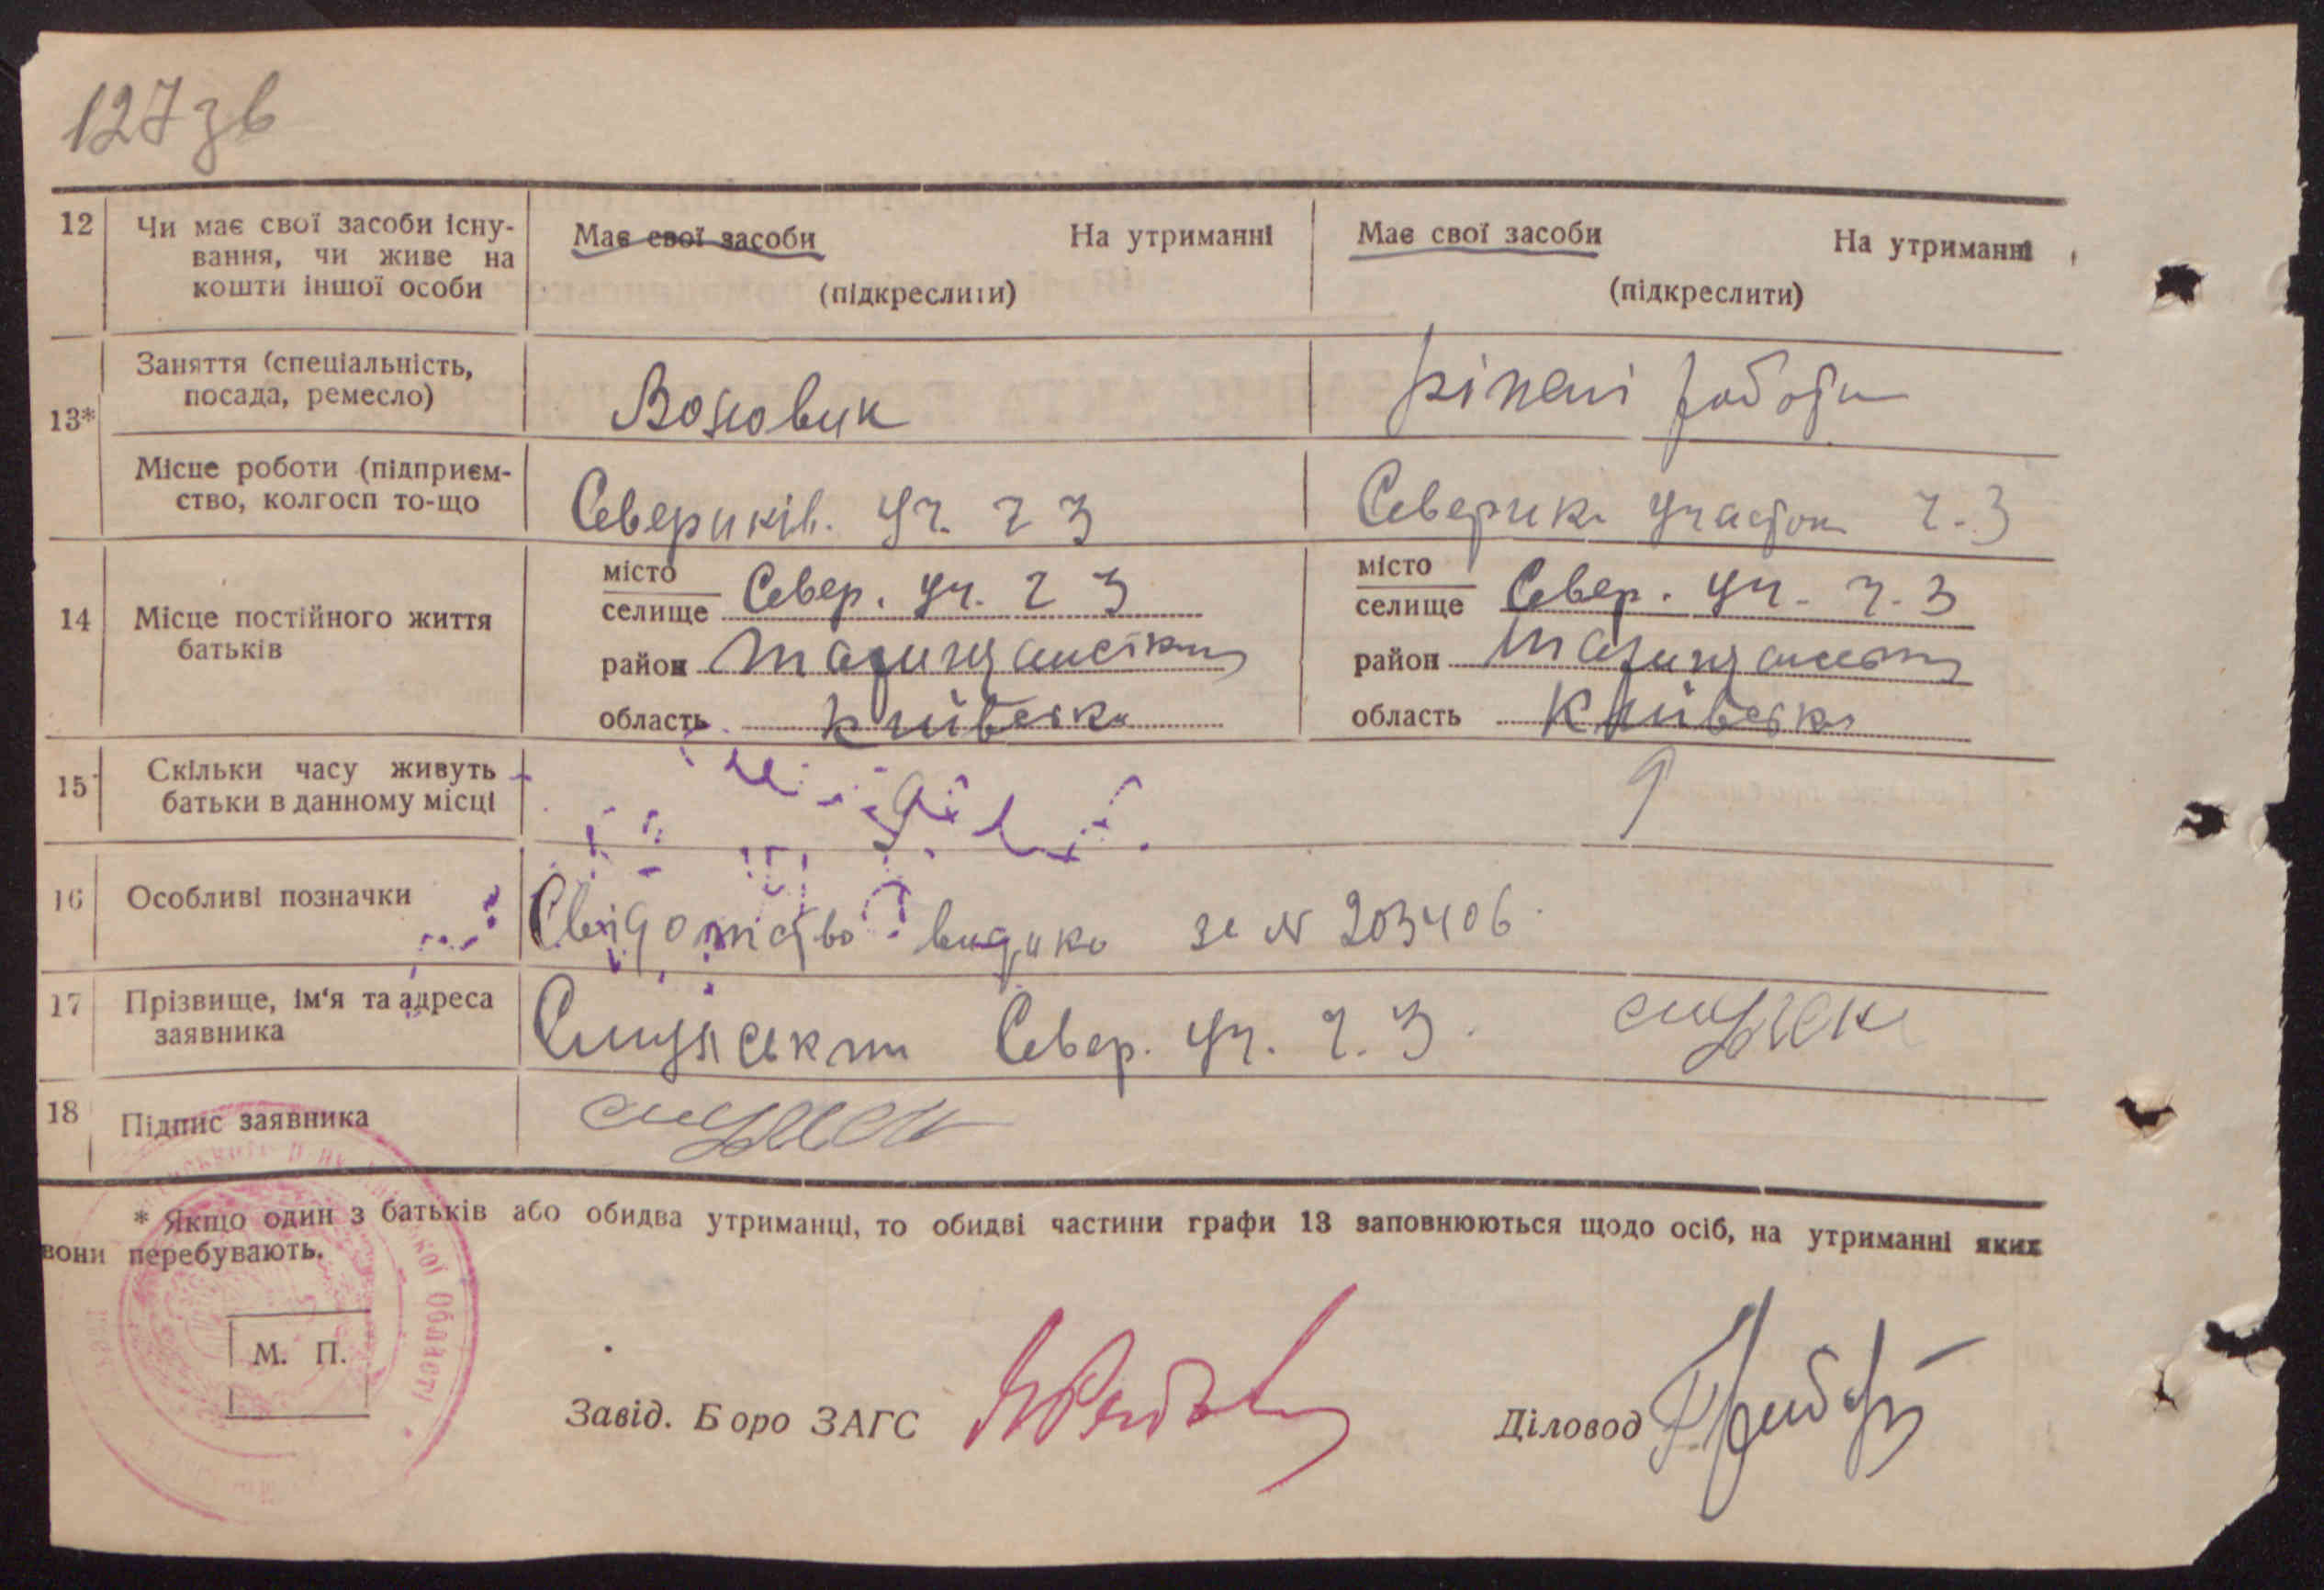 127 зв
12 Чи має свої засоби існу- Має свої засоби На утриманні Має свої засоби На утриманні
вання, чи живе на
кошти іншої особи (підкреслити) (підкреслити)
Заняття (спеціальність,
посада, ремесло) різні роботи
13*
Місце роботи (підприєм- Севериків. уч. ч 3 Северик. участок ч. 3
ство, колгосп то-що
місто місто
селище Север. уч. ч 3 селище Север. уч. ч. 3
14 Місце постійного життя
батьків
район район
область Київська область Київська
15 Скільки часу живуть 9 9
батьки в данному місці
16 Особливі позначки Свідотство видано за № 203406
17 Прізвище, ім'я та адреса Север. уч. ч. 3.
заявника
18 Підпис заявника
* Якщо один з батьків або обидва утриманці, то обидві частини графи 13 заповнюються щодо осіб, на утриманні яких
вони перебувають.
ської Області
М. П.
Завід. Бюро ЗАГС Діловод